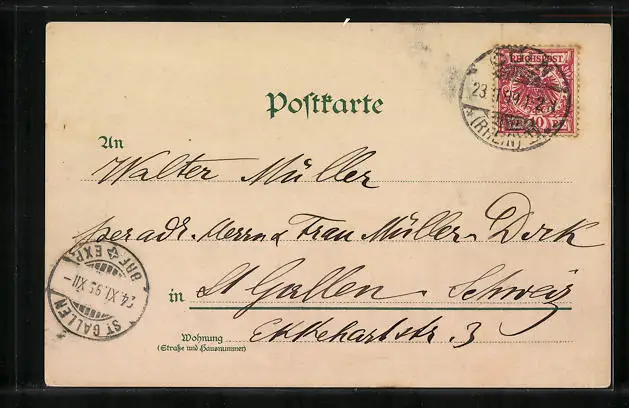 REICHSPOST
10
(RHEIN)
Postkarte
An
Walter Müller
per adr. Herrn & Frau Müller-Dock
in St Gallen Schweiz
Wohnung
(Straße und Hausnummer)
Ekkehartstr. 3
ST GALLEN
24.XI.95 XII-
BRF EXP.